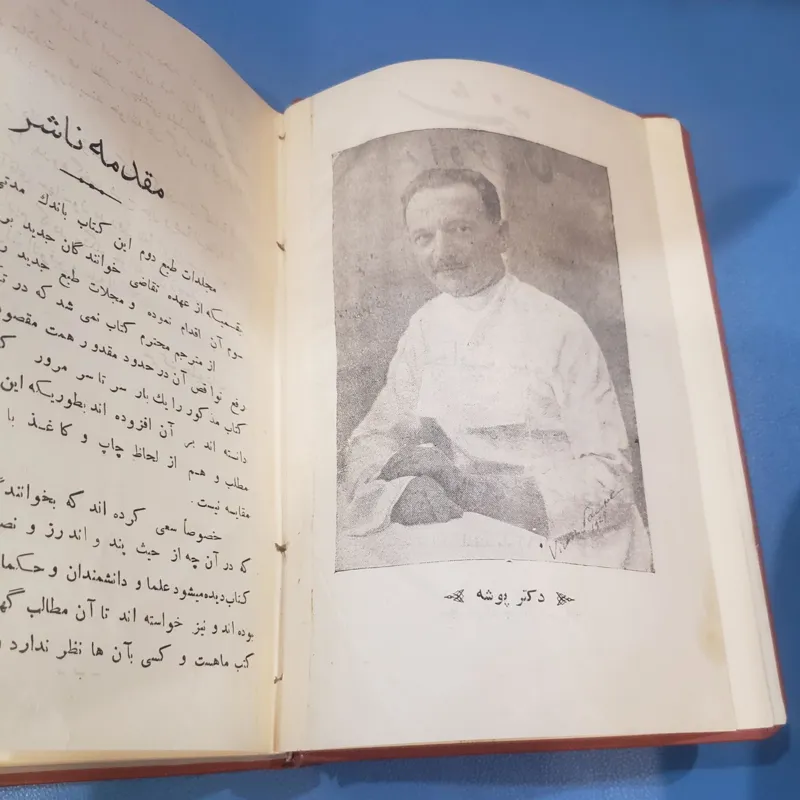 مقدمه ناشر
مجلدات طبع دوم این کتاب باندك مدتی
بقسمیکه از عهده تقاضی خوانندگان جدید بر
سوم آن اقدام نموده و مجلات طبع جدید
از مترجم محترم کتاب نمی شد که در
رفع نواقص آن در حدود مقدور همت مقصور
کتاب مذکور را یك بار سر تا سر مرور
دانسته اند بر آن افزوده اند بطوریکه این
مطلب و هم از لحاظ چاپ و کاغذ با
مقایسه نیست.
خصوصاً سعی کرده اند که بخوانندگ
که در آن چه از حیث پند و اندرز و نص
کتاب دیده میشود علما و دانشمندان و حکما
بوده اند و نیز خواسته اند تا آن مطالب گه
کتب ماهست و کسی بآن ها نظر ندارد
دکتر پوشه